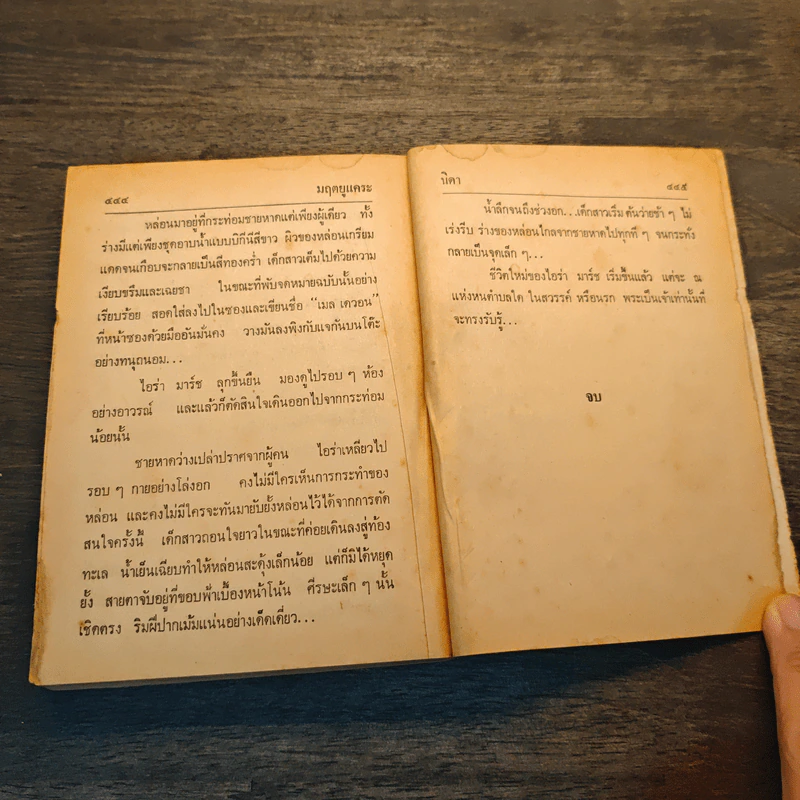 ๔๔๔ มฤตยูแคระ
หล่อนมาอยู่ที่กระท่อมชายหาดแต่เพียงผู้เดียว ทั้ง
ร่างมีแต่เพียงชุดอาบน้ำแบบบิกินีสีขาว ผิวของหล่อนเกรียม
แดดจนเกือบจะกลายเป็นสีทองคร่ำ เด็กสาวเต็มไปด้วยความ
เงียบขรึมและเฉยชา ในขณะที่พับจดหมายฉบับนั้นอย่าง
เรียบร้อย สอดใส่ลงไปในซองและเขียนชื่อ “เมล เดวอน”
ที่หน้าซองด้วยมืออันมั่นคง วางมันลงพิงกับแจกันบนโต๊ะ
อย่างทนุถนอม...
ไอร่า มาร์ช ลุกขึ้นยืน มองดูไปรอบ ๆ ห้อง
อย่างอาวรณ์ และแล้วก็ตัดสินใจเดินออกไปจากกระท่อม
น้อยนั้น
ชายหาดว่างเปล่าปราศจากผู้คน ไอร่าเหลียวไป
รอบ ๆ กายอย่างโล่งอก คงไม่มีใครเห็นการกระทำของ
หล่อน และคงไม่มีใครจะทันมายับยั้งหล่อนไว้ได้จากการตัด
สนใจครั้งนี้ เด็กสาวถอนใจยาวในขณะที่ค่อยเดินลงสู่ท้อง
ทะเล น้ำเย็นเฉียบทำให้หล่อนสะดุ้งเล็กน้อย แต่ก็มิได้หยุด
ยั้ง สายตาจับอยู่ที่ขอบฟ้าเบื้องหน้าโน้น ศีรษะเล็ก ๆ นั้น
เชิดตรง ริมฝีปากเม้มแน่นอย่างเด็ดเดี่ยว...
นิดา ๔๔๕
น้ำลึกจนถึงช่วงอก...เด็กสาวเริ่มต้นว่ายช้า ๆ ไม่
เร่งรีบ ร่างของหล่อนไกลจากชายหาดไปทุกที ๆ จนกระทั่ง
กลายเป็นจุดเล็ก ๆ...
ชีวิตใหม่ของไอร่า มาร์ช เริ่มขึ้นแล้ว แต่จะ ณ
แห่งหนตำบลใด ในสวรรค์ หรือนรก พระเป็นเจ้าเท่านั้นที่
จะทรงรับรู้...
จบ